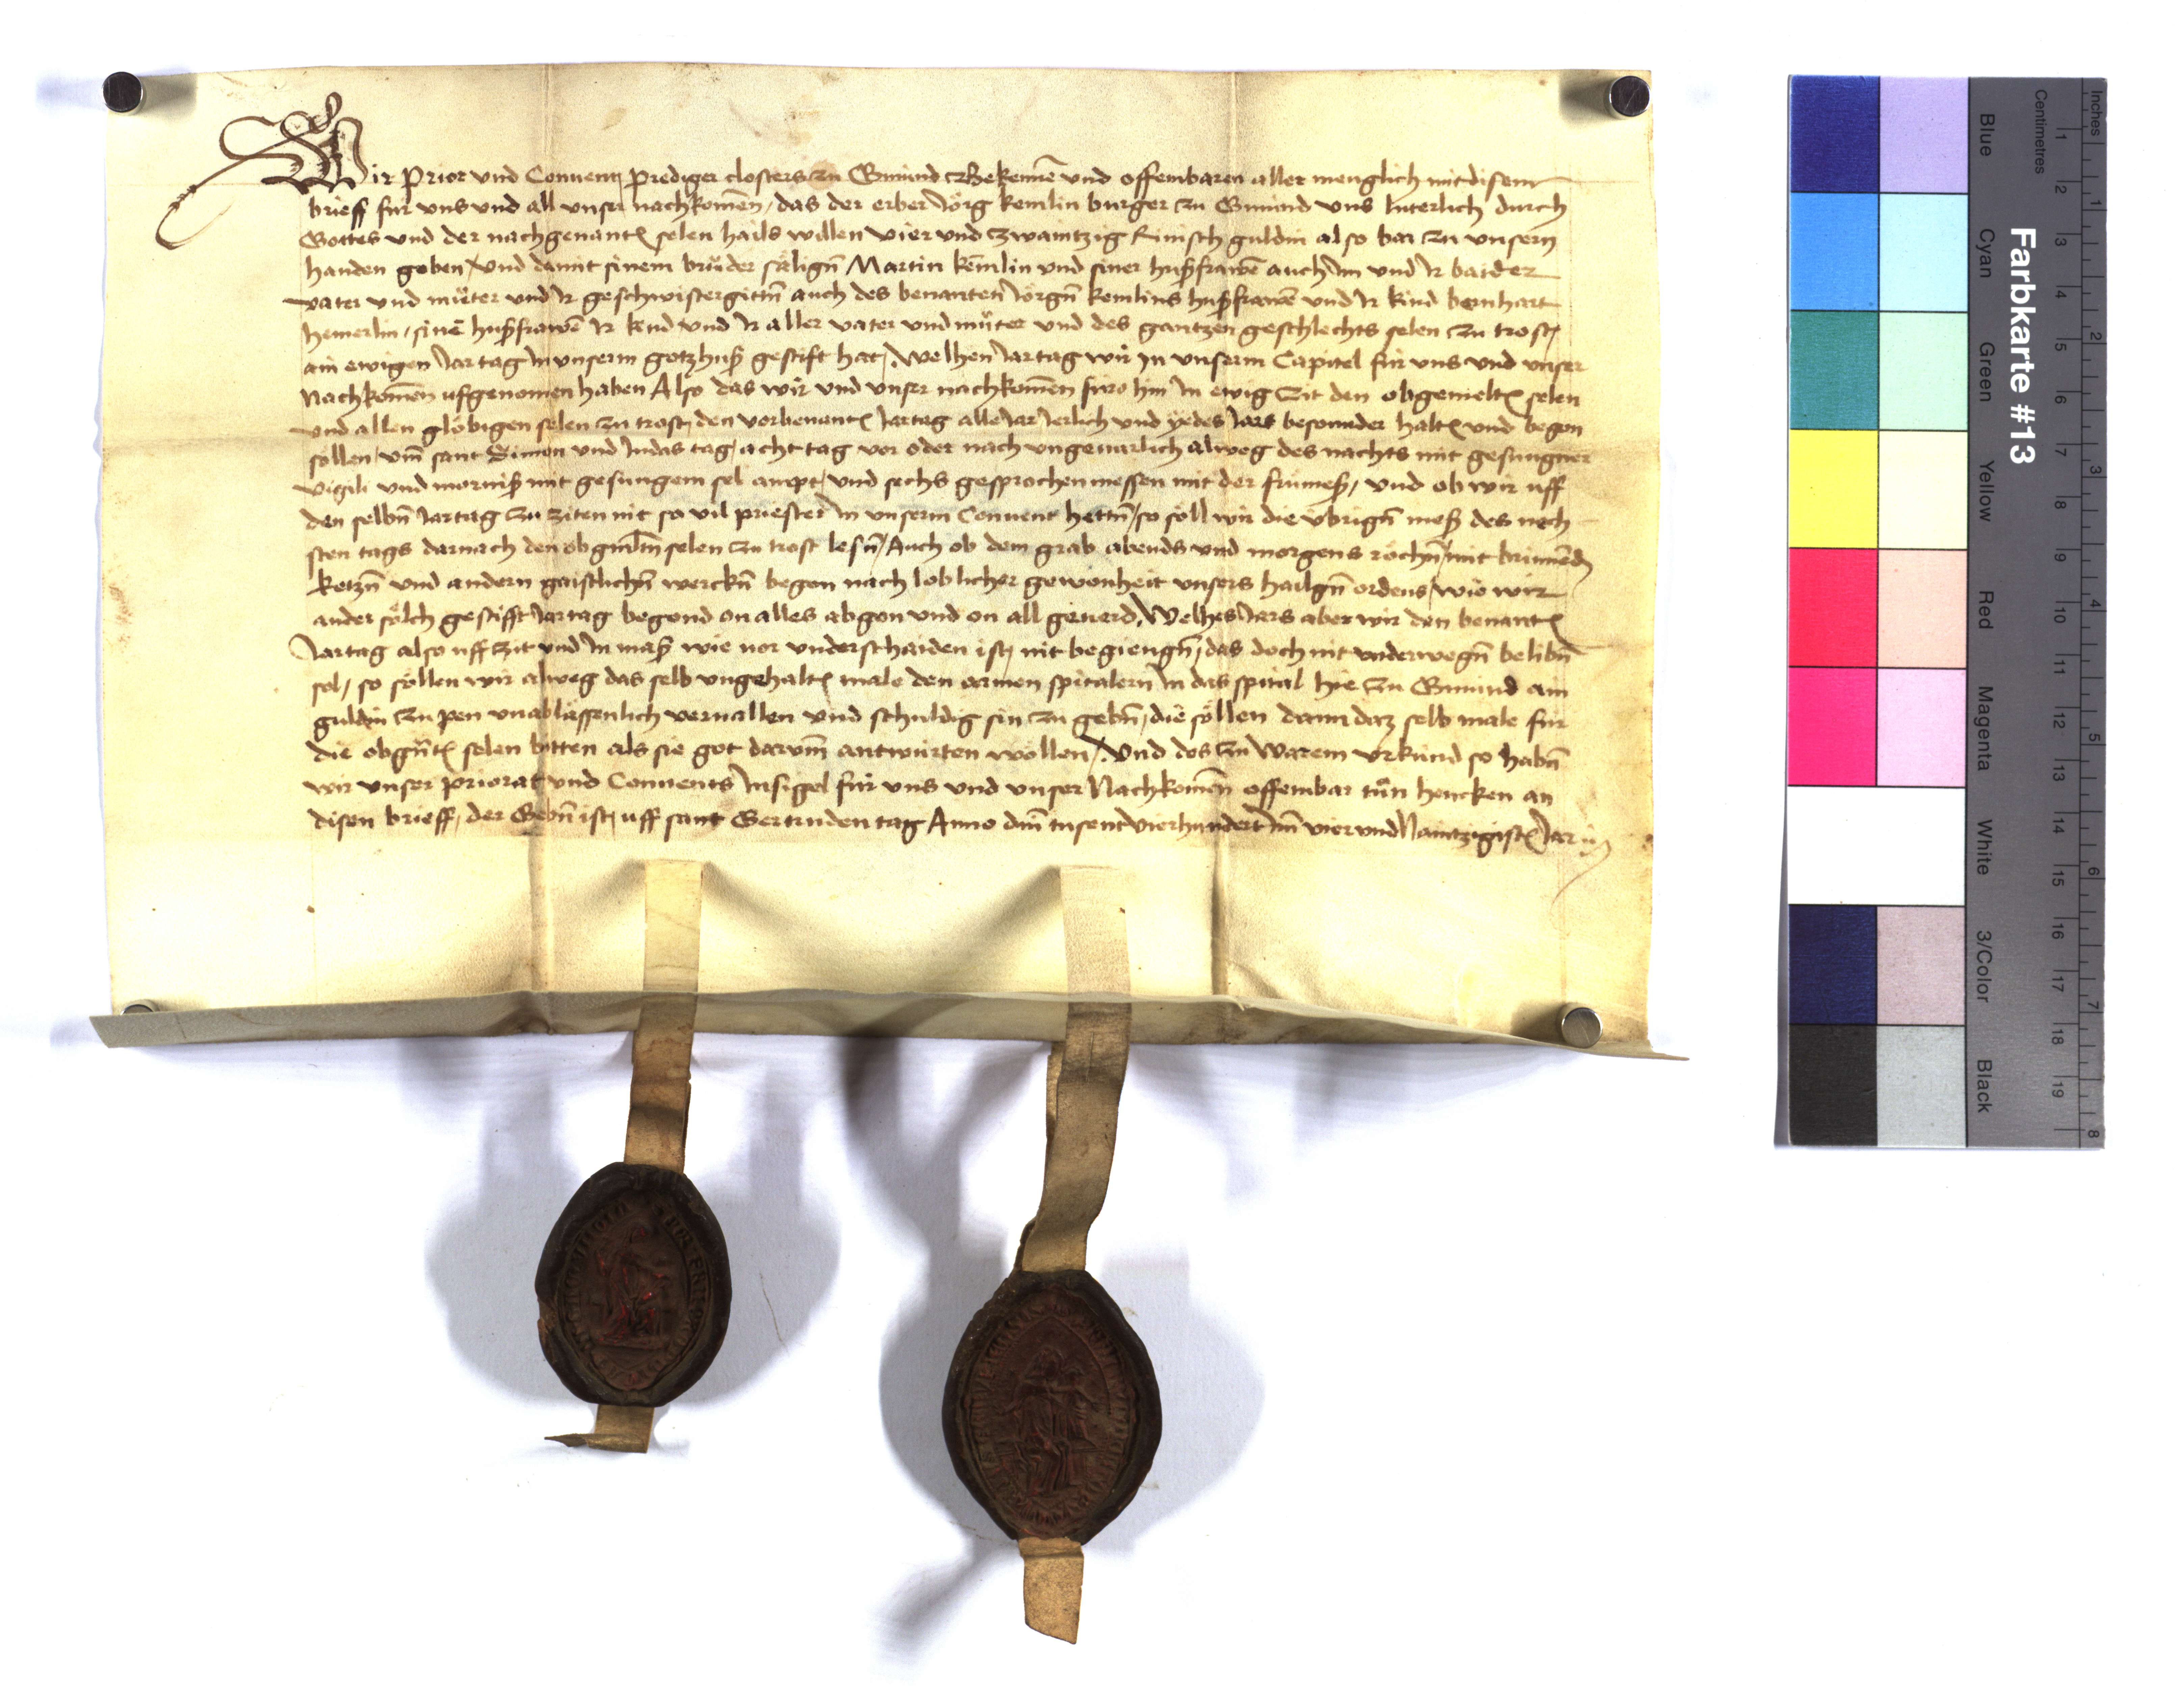 Wir Prior und Convent Prediger closters zu Gmünd Bekennē und offembaren aller menglich mit disem
brieff für uns und all unser nachkomen, das der erber Jörg kemlin burger zu Gmünd uns luterlich durch
Gottes und der nachgenantē selen hails willen vier und zwaintzig Rinisch guldin also bar zu unsern
handen geben, Und damit sinem brůder säligñ Martin kemlin und siner hußfrawē auch Im und Ir baider
vater und můter und Ir geschwistergittñ auch des benanten Jörgñ kemlins hußfrawē und Ir kind bernhart
hemerlin, sinē hußfrawē Ir kind und Ir aller vater und můter und des gantzen geschlechts selen zu trost,
ain ewigen Jartag In unserm gotzhuß gestift hat, Welhen Jartag wir In unserm Capitel für uns und unser
Nachkomen ufgenomen haben Also das wir und unser nachkomen füro hin In ewig zit den obgemeltē selen
und allen glöbigen selen zu trost, den vorbenantē Jartag alle Jar Jerlich und yedes Jars besonnder haltē und begon
söllen, um̄ sant Simon und Judas tag, acht tag vor oder nach ungeuarlich alweg des nachts mit gesungner
vigili und morniß mit gesungem sel ampt, und sechs gesprochen messen mit der frümeß, und ob wir uff
den selbñ Jartag zu ziten nit so vil priester In unserm Convent hettñ, so söll wir die übrigñ meß des nech
sten tags darnach den obgmltn selen zu trost lesñ, Auch ob dem grab abends und morgens röchñ, mit brinnēdñ
kertzñ und andern gaistlichñ werckñ begon nach loblicher gewonheit unsers hailgñ ordens, wie wir
ander sölch gestifft Jartag begond on alles abgon und on all geuerd, Welhes Jars aber wir den benantē
Jartag also uff zit und In maß wie vor underschaiden ist, nit begiengñ, das doch nit underwegñ belibñ
sol, so söllen wir alweg das selb ungehaltē male den armen spitalern In das spital hie zu Gmünd ain
guldin zu pen unabläßenlich veruallen und schuldig sin zu gebñ, die söllen dann daz selb male für
die obgñtē selen bitten als sie got darum̄ antwürten wöllen, Und des zu Warem urkünd so habñ
wir unser priorat und Convents Insigel für uns und unser Nachkomen offembar tůn hencken an
disen brieff, der Gebñ ist, uff sant Gertruden tag Anno dm̄ tusent vierhundert Im vier und Naintzigistē Jar
Farbkarte #13
Inches
Centimetres
1 2 3 4 5 6 7 8
1 2 3 4 5 6 7 8 9 10 11 12 13 14 15 16 17 18 19
Blue Cyan Green Yellow Red Magenta White 3/Color Black